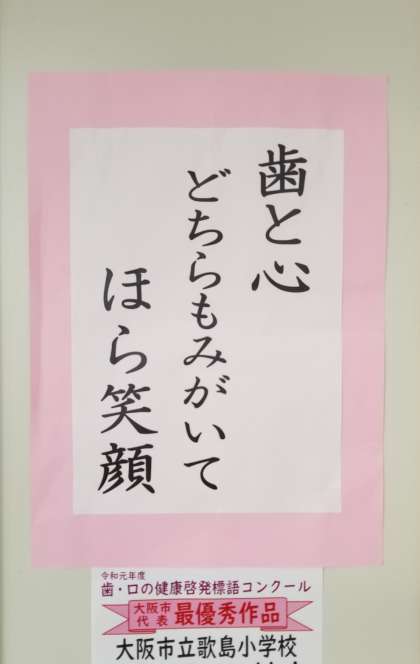 歯と心
どちらもみがいて
ほら笑顔
令和元年度
歯・口の健康啓発標語コンクール
大阪市
代表
最優秀作品
大阪市立歌島小学校